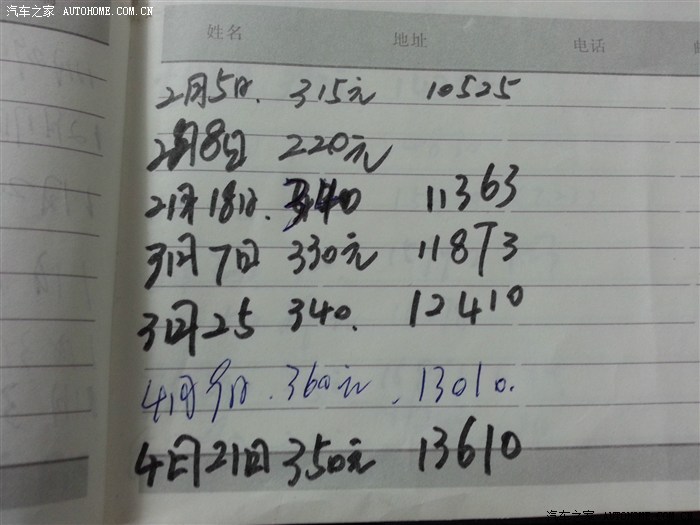 汽车之家 AUTOHOME.COM.CN
姓名 地址 电话
2月5日. 315元 10525
2月8日 220元
2月18日. 340 11363
3月7日 330元 11873
3月25 340. 12410
4月9日. 360元. 13010.
4月21日 350元 13610
汽车之家 AUTOHOME.COM.CN